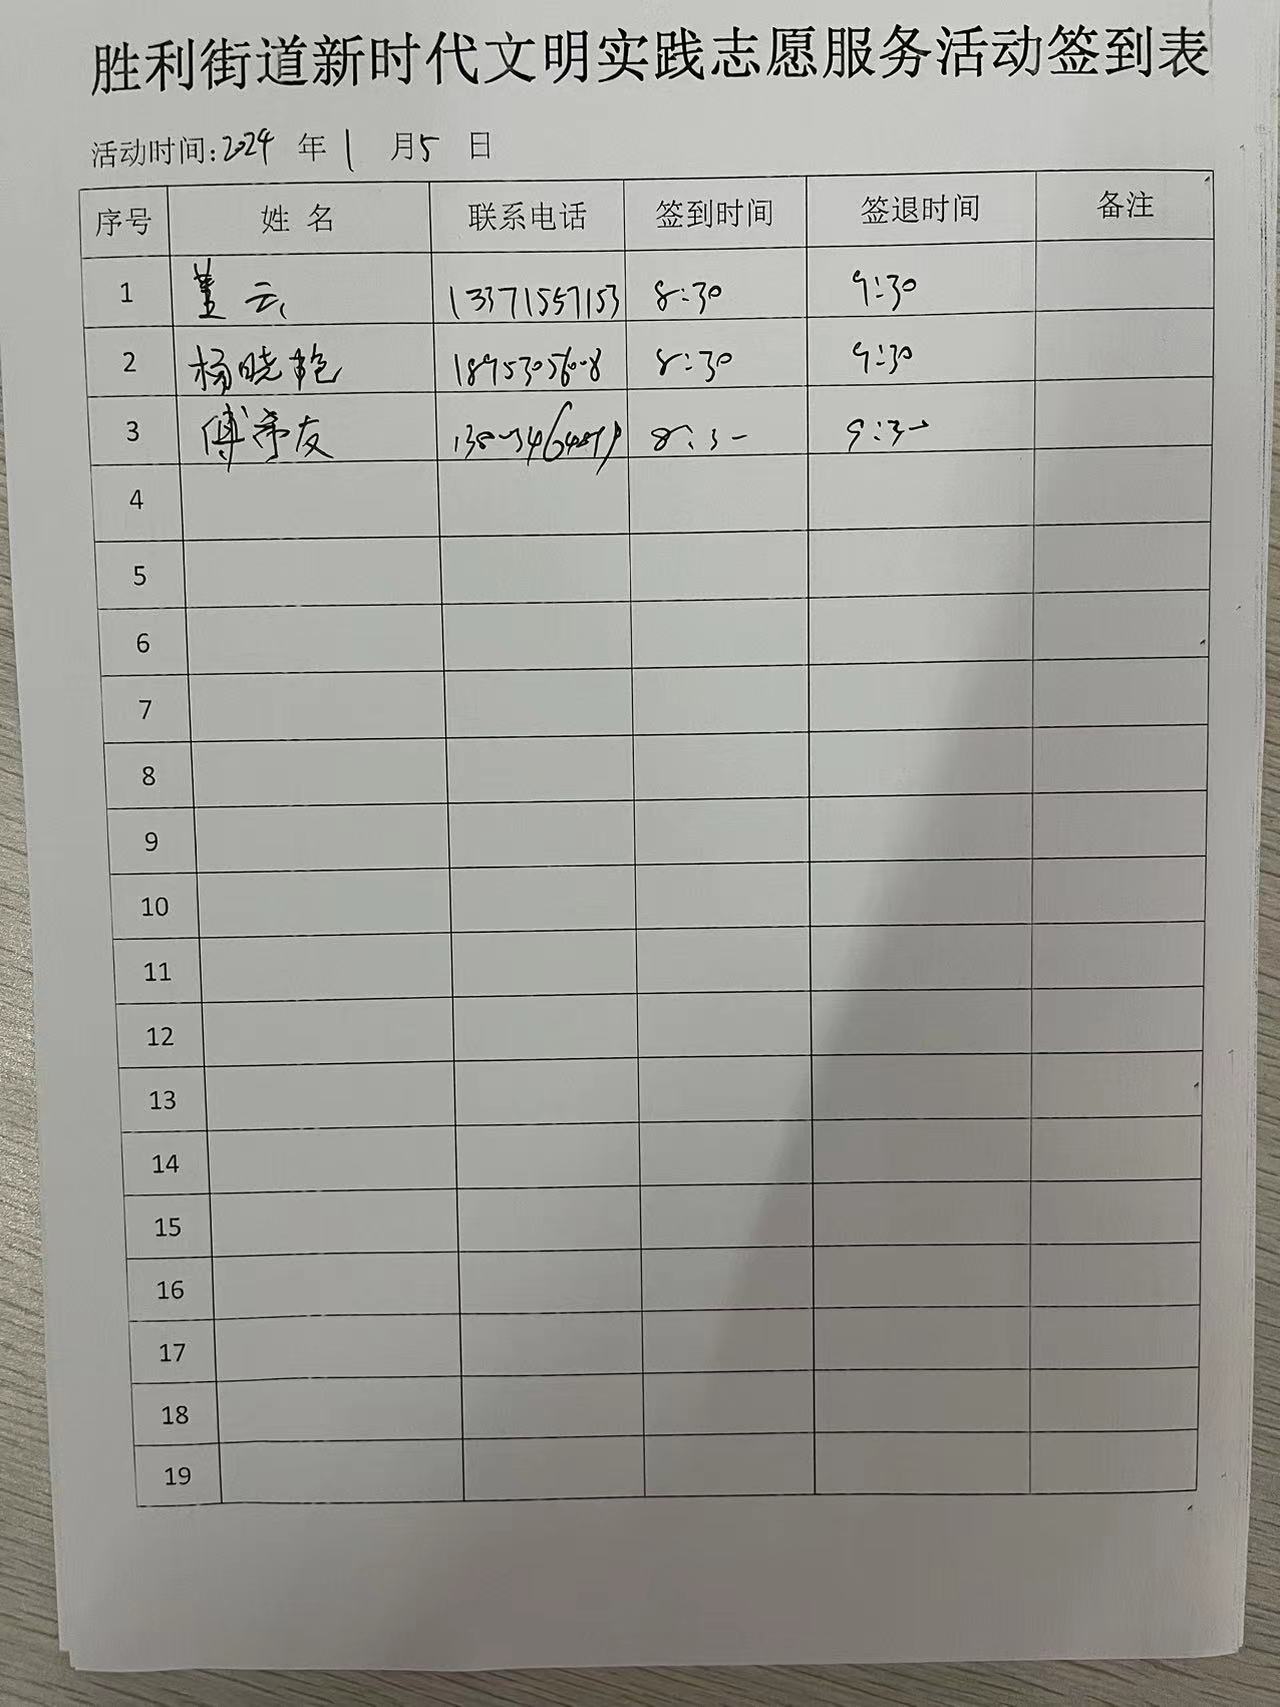 胜利街道新时代文明实践志愿服务活动签到表
活动时间:2024 年 1 月 5 日
序号 姓 名 联系电话 签到时间 签退时间 备注
1 云 13371557153 8:30 9:30
2 杨晓艳 18953056008 8:30 9:30
3 傅希友 8:30 9:30
4
5
6
7
8
9
10
11
12
13
14
15
16
17
18
19